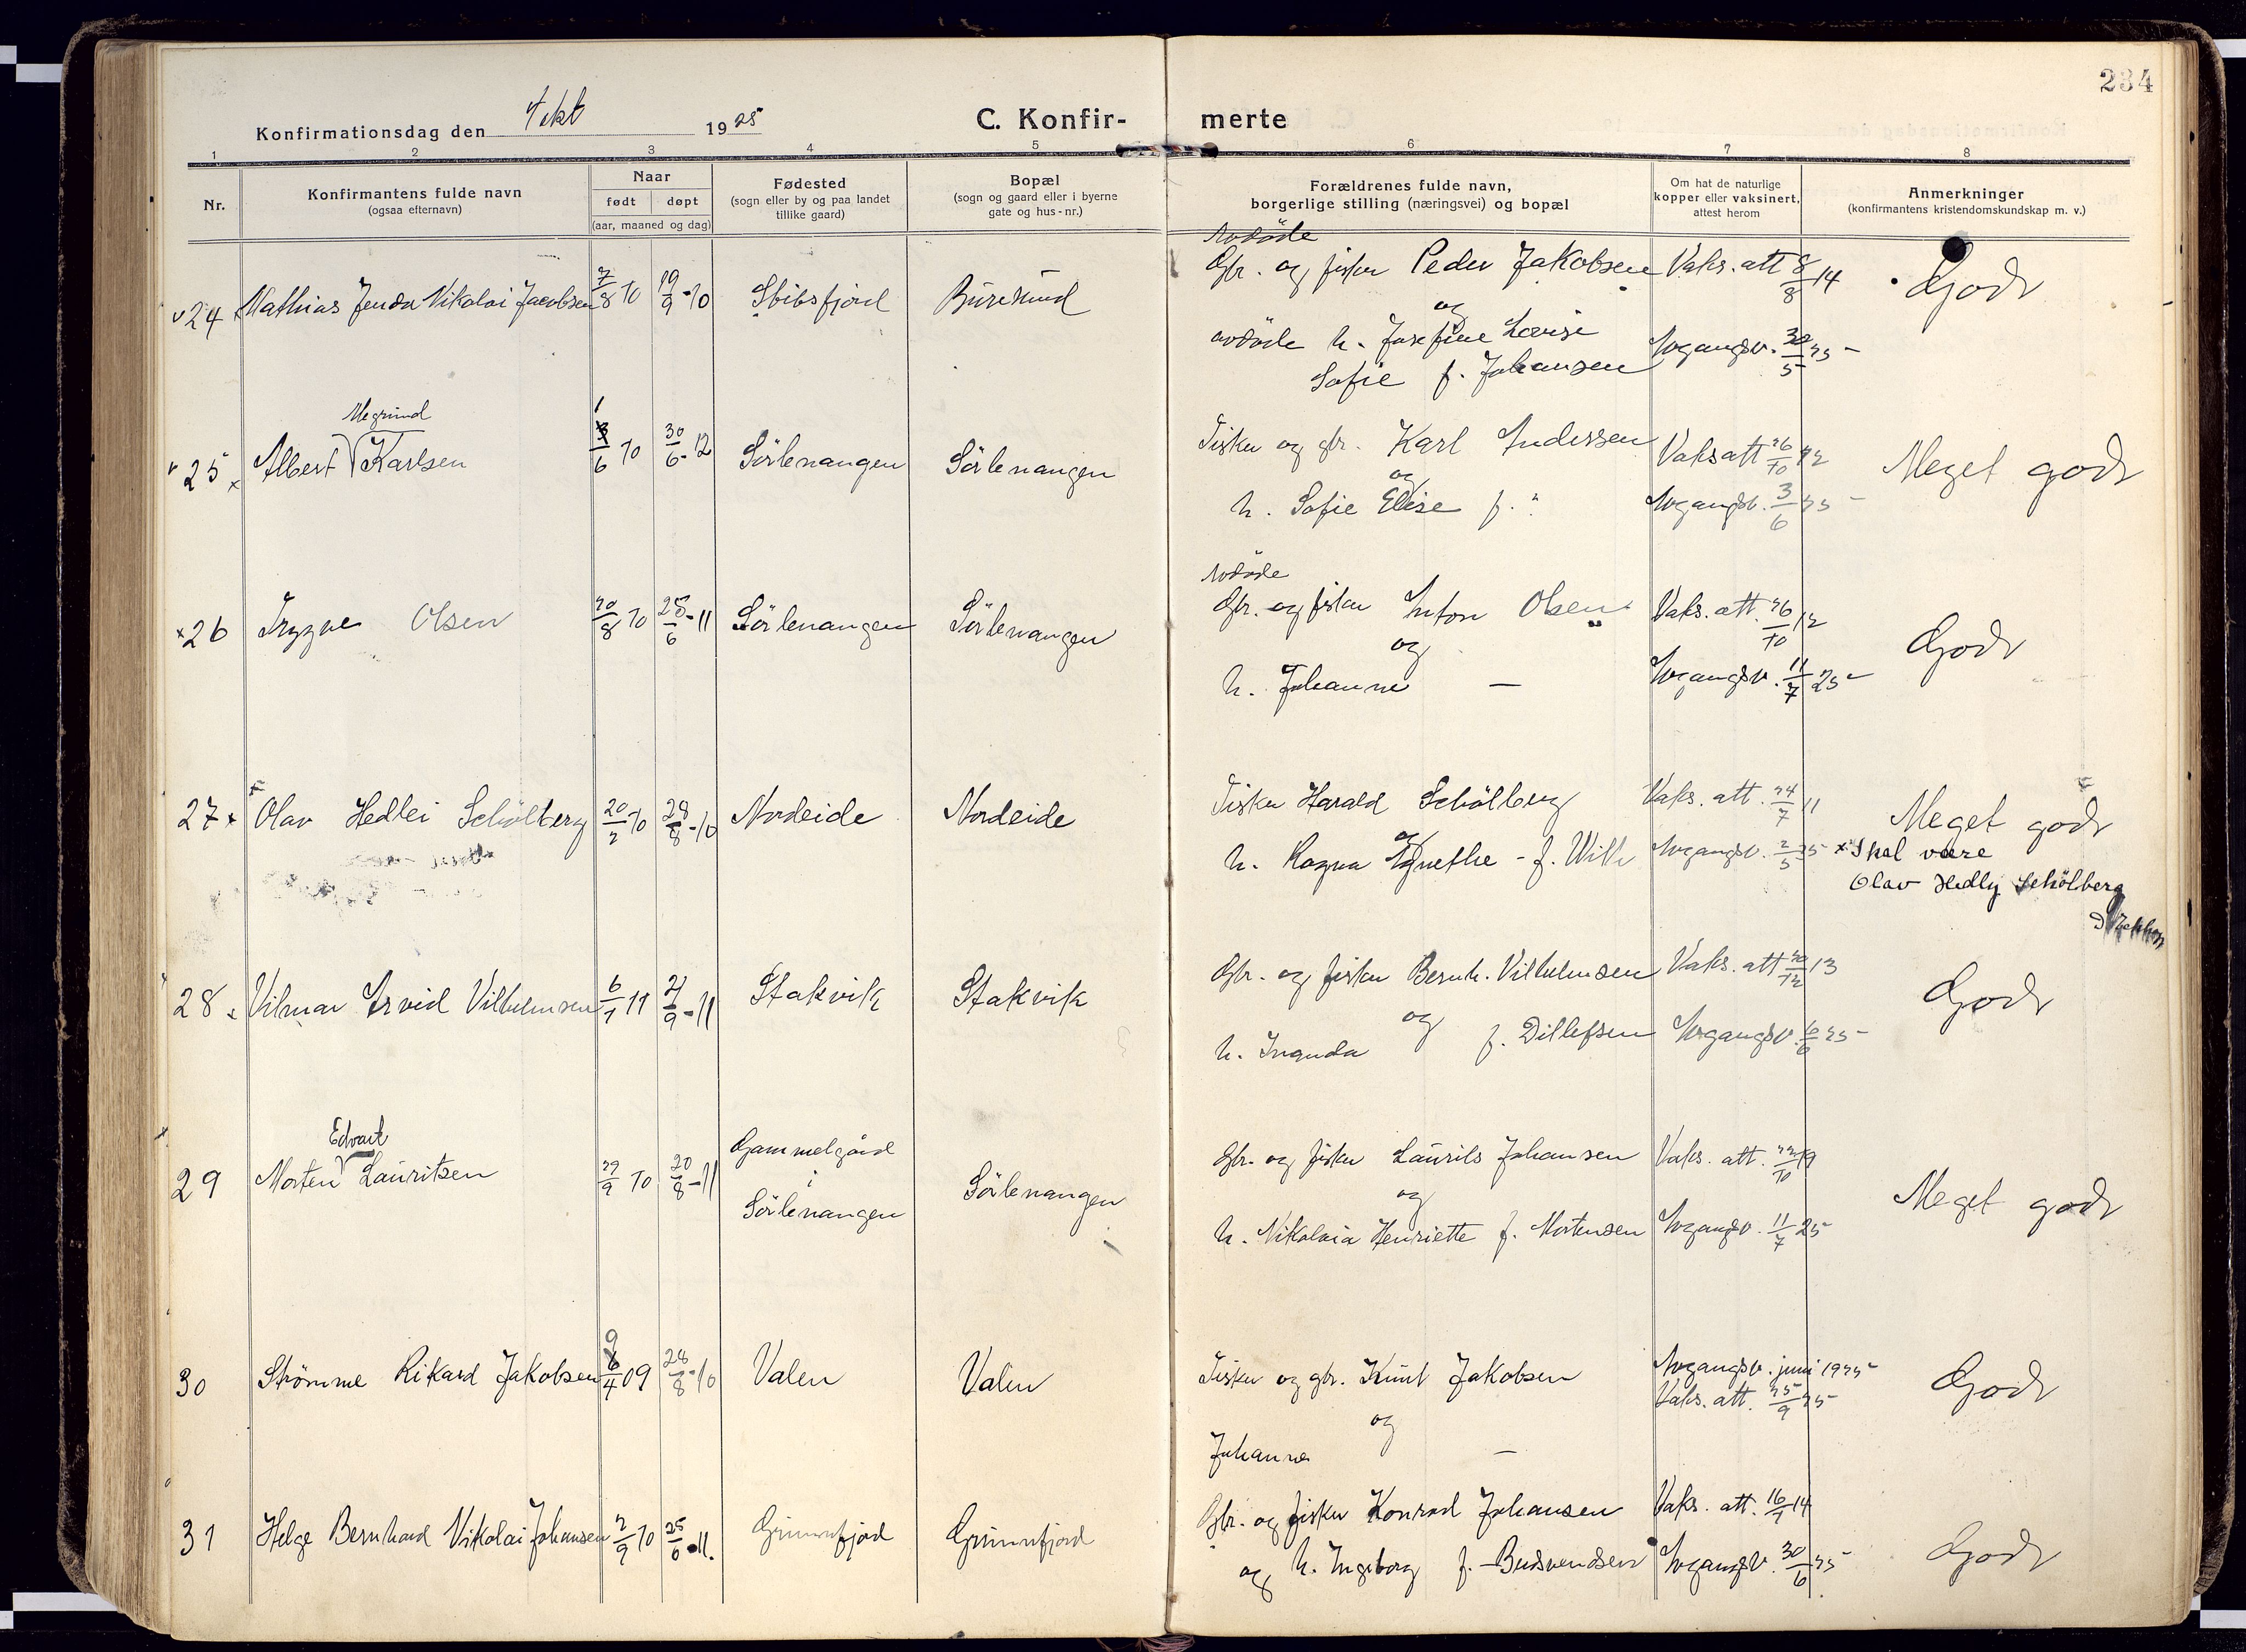 234
Konfirmationsdag den 4 okt 1925
C. Konfir- merte
1 2 3 4 5 6 7 8
Nr.
Konfirmantens fulde navn
(ogsaa efternavn)
Naar
født døpt
(aar, maaned og dag)
Fødested
(sogn eller by og paa landet
tillike gaard)
Bopæl
(sogn og gaard eller i byerne
gate og hus-nr.)
Forældrenes fulde navn,
borgerlige stilling (næringsvei) og bopæl
Om hat de naturlige
kopper eller vaksinert,
attest herom
Anmerkninger
(konfirmantens kristendomskundskap m. v.)
Avdöde
24 Mathias Nikolai Jacobsen 7/8 10 19/9-10 Gbr. og fisker Peder Jakobsen Vaks. att 8/8 14 Godt
og
avdöde h. Josefine Lovise
Sofie f. Johansen Avgangsv. 30/5 25
Megrund
25 Albert Karlsen 1/6 10 30/6-12 Sörlenangen Sörlenangen Fisker og gbr. Karl Andersen Vaks att 26/10 12 Meget godt
og
h. Sofie Elise f. " Avgangsv. 3/6 25
Avdöde
26 Trygve Olsen 20/8 10 25/6-11 Sörlenangen Sörlenangen Gbr. og fisker Anton Olsen Vaks. att. 26/10 12 Godt
og
h. Johanne — Avgangsv. 11/7 25
27 Olav Hedlei Schölberg 20/2 10 28/8-10 Nordeide Nordeide Fisker Harald Schölberg Vaks. att. 24/7 11 Meget godt
og
h. Ragna Agnethe - f. Wilh Avgangsv. 2/5 25 x Skal være
Olav Hedly Schölberg
28 Vilmar Arvid Vilhelmsen 6/1 11 21/9-11 Stakvik Stakvik Gbr. og fisker Bernh. Vilhelmsen Vaks. att 20/12 13 Godt
og
h. Ingunda f. Ditlefsen Avgangsv. 6/6 25
Edvart
29 Morten Lauritsen 29/9 10 20/8-11 Gammelgård
i
Sörlenangen Sörlenangen Gbr. og fisker Laurits Johansen Vaks. att. Meget godt
og
h. Nikolaia Henriette f. Mortensen Avgangsv. 11/7 25
30 Strömme Rikard Jakobsen 9/4 09 28/8-10 Valen Valen Fisker og gbr. Knut Jakobsen Avgangsv. juni 1925 Godt
Vaks. att. 25/9 25
og
Johanne —
31 Helge Bernhard Nikolai Johansen 2/9 10 25/6-11. Grunnfjord Grunnfjord Gbr. og fisker Konrad Johansen Vaks. att. 16/7 14 Godt
og h. Ingeborg f. Avgangsv. 30/6 25